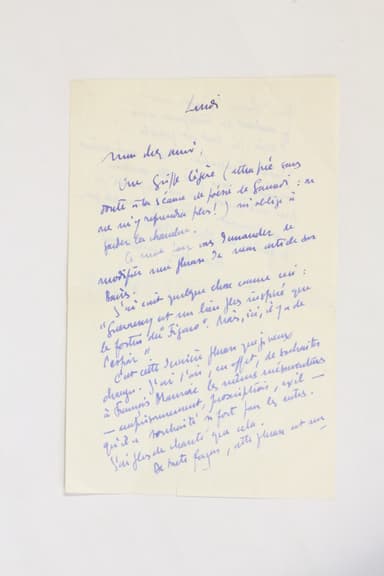 Lundi
mon cher ami,
Une grippe légère (attrapée sans
doute à la séance de poésie de Samedi : on
ne m'y reprendra plus !) m'oblige à
garder la chambre.
vous demander de
modifier une phrase de mon article sur
J'ai écrit quelque chose comme ceci :
"Guernesey est un lieu plus inspiré que
le fortin du "Figaro". Mais, ici, il y a de
l'espoir."
C'est cette dernière phrase que je veux
changer. J'ai l'air, en effet, de souhaiter
à François Mauriac les mêmes mésaventures
— emprisonnement, proscription, exil —
qu'il a souhaité si fort pour les autres.
J'ai plus de charité que cela.
De toute façon, cette phrase est